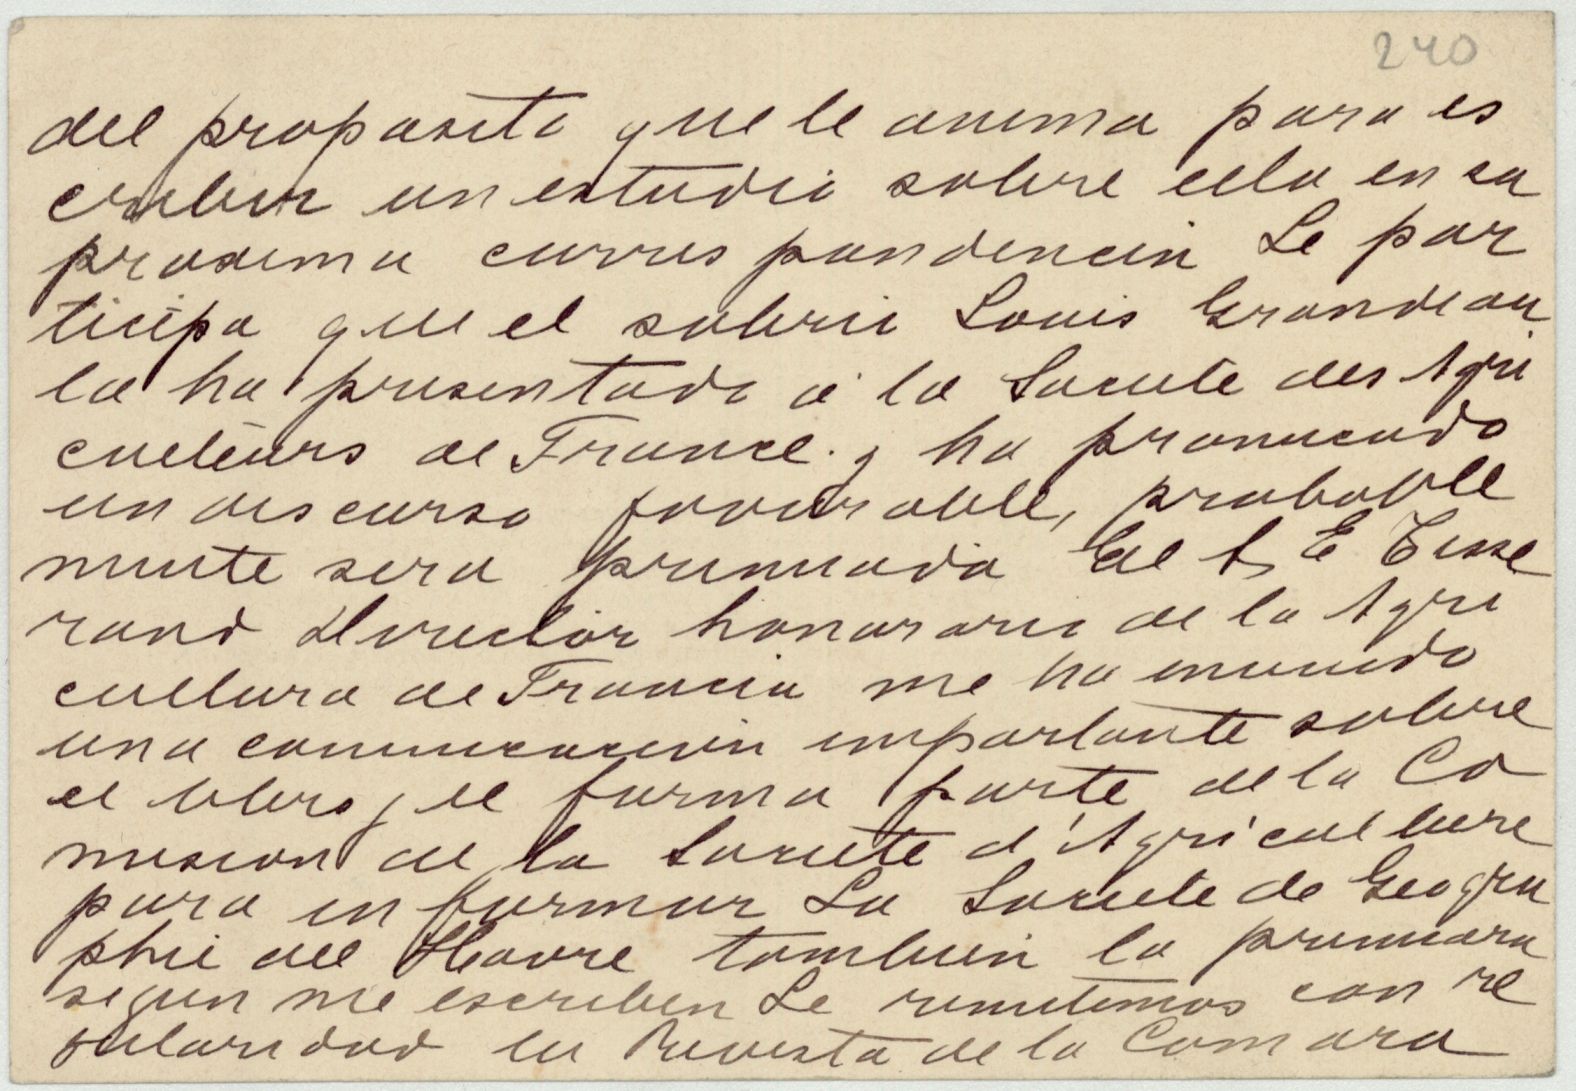 240
del proposito que le anima para es
cribir un estudio sobre ella en su
proxima correspondencia Le par
ticipo que el sabio Louis Grandeau
la ha presentado á la Societe des Agri
culteurs de France y ha pronunciado
un discurso favorable, probable
mente sera premiada El S. E Tisse
rand Director honorario de la Agri
cultura de Francia me ha enviado
una comunicacion importante sobre
el libro y el forma parte de la Co
mision de la Societe d'Agriculture
para informar La Societe de Geogra
phie del Havre tambien la premiara
segun me escriben Le remitimos con re
gularidad la Revista de la Camara